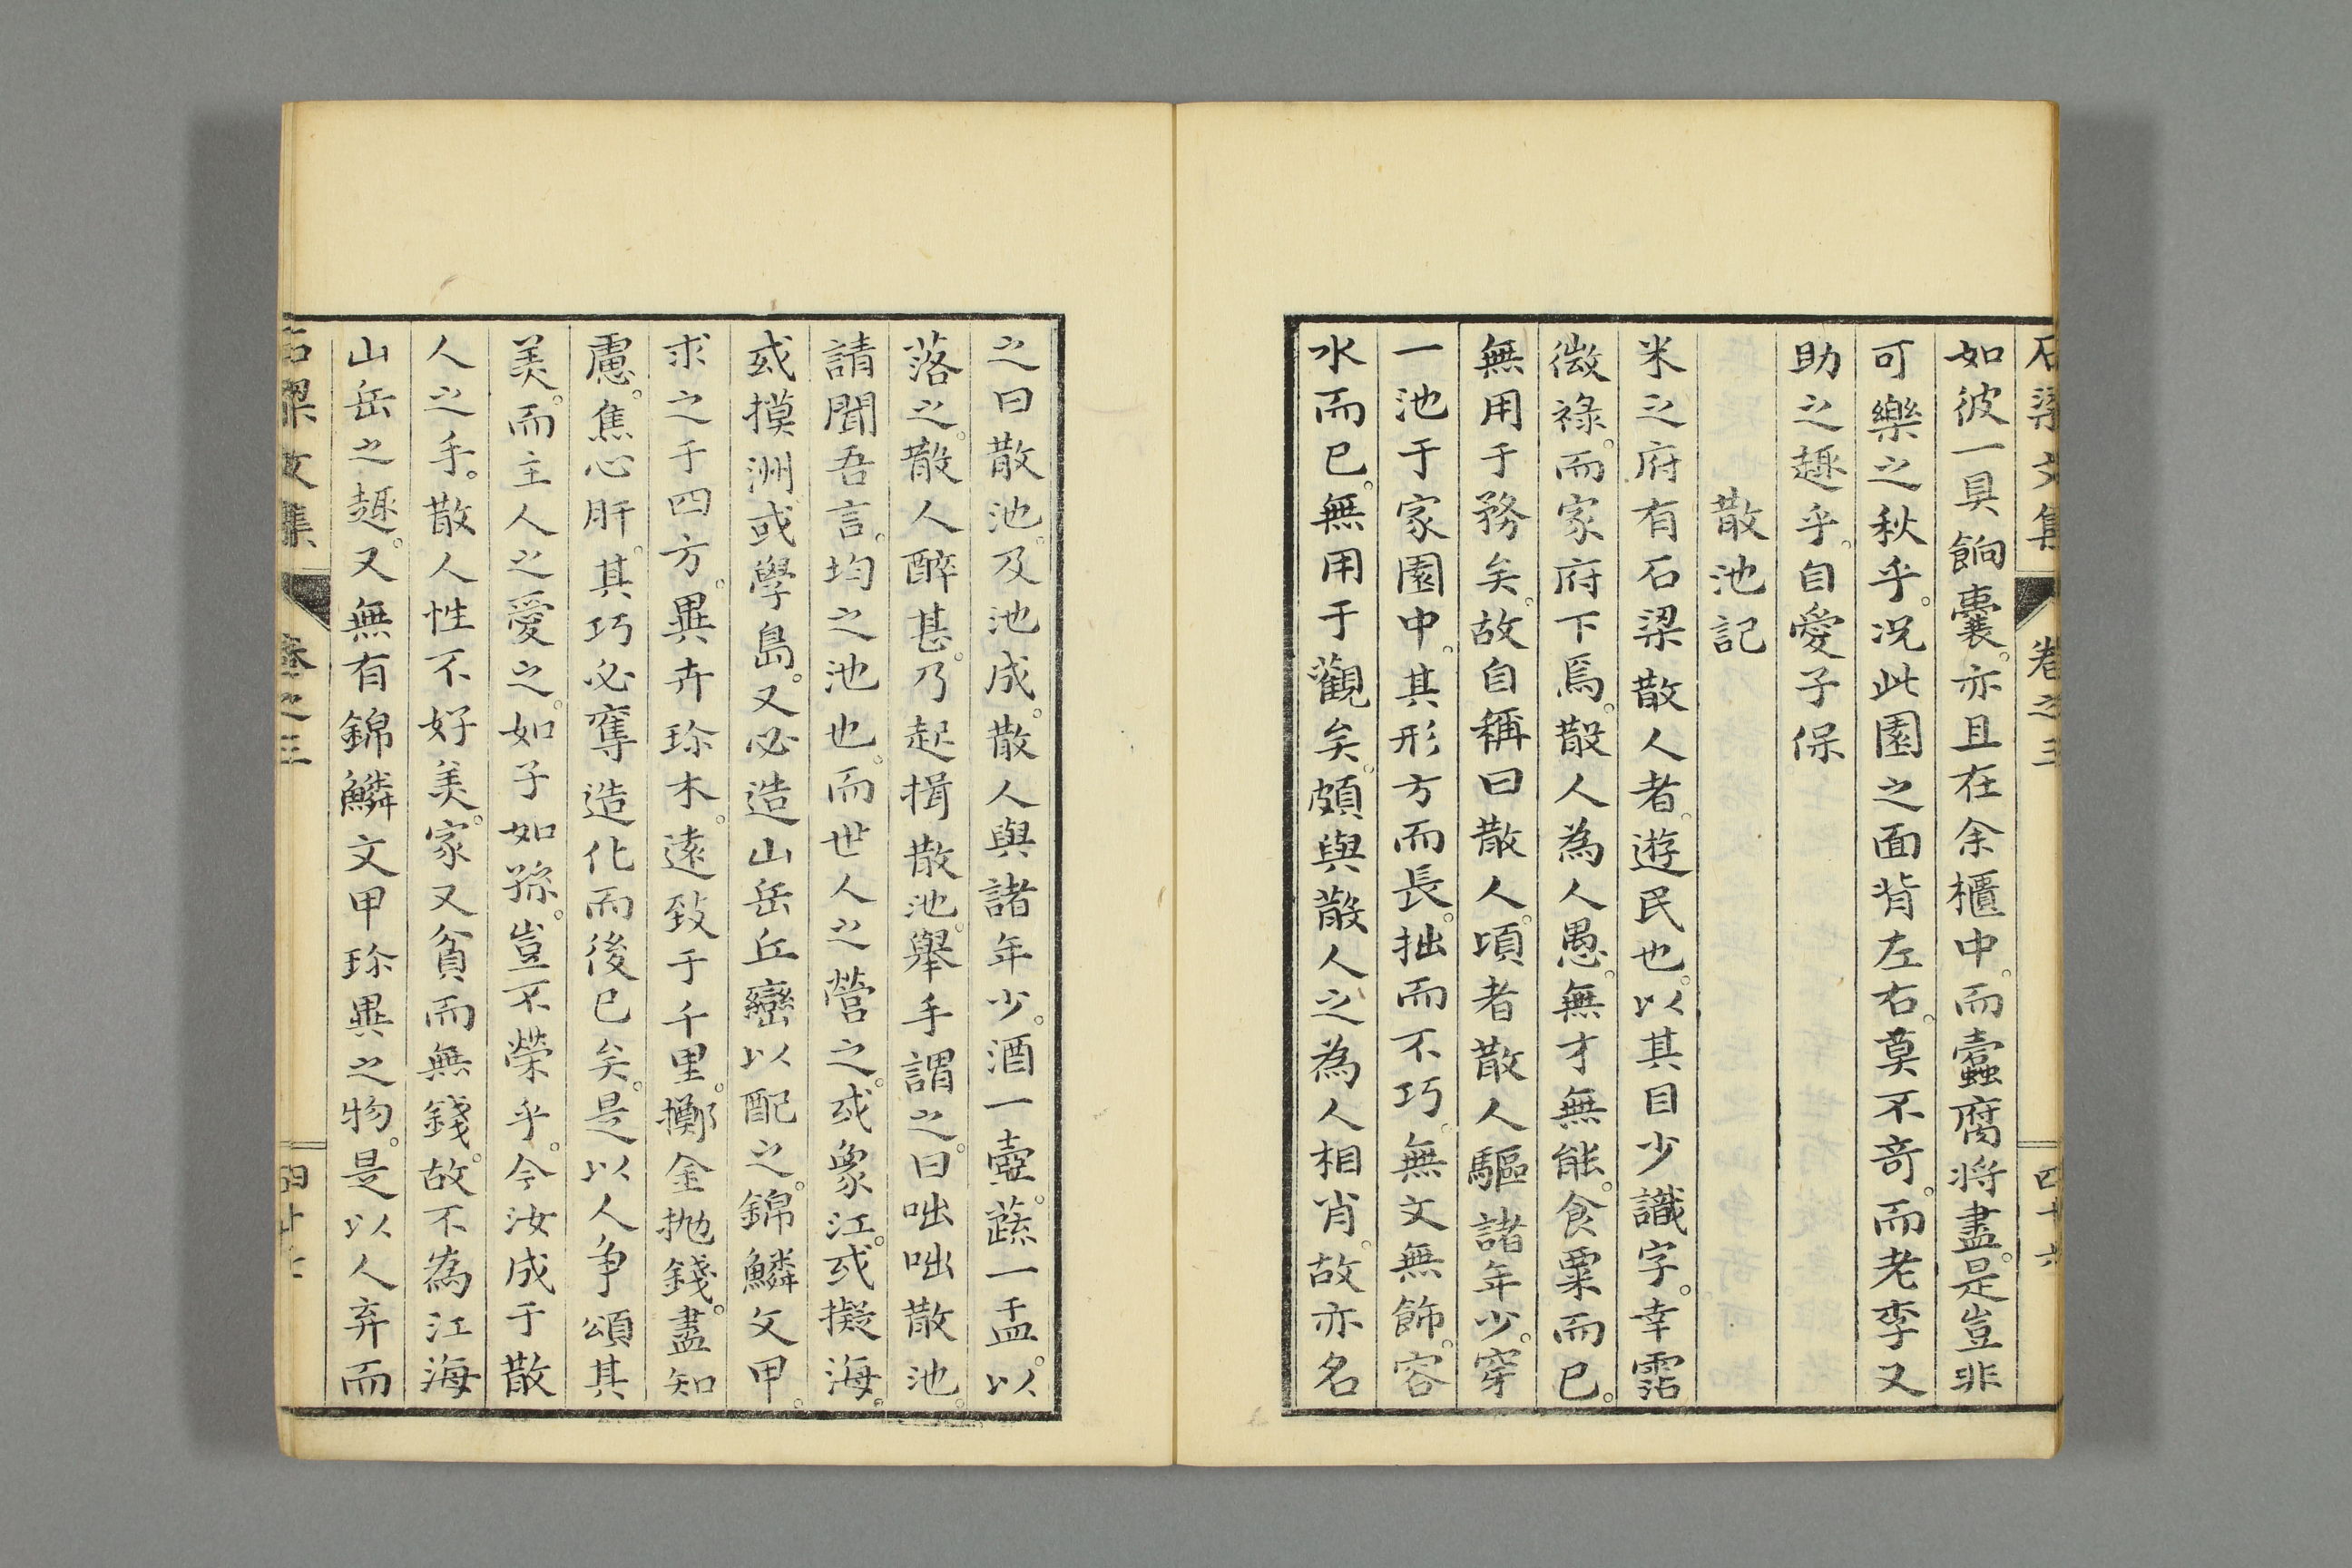 石梁文集 卷之三 四十六
如彼一具餉囊。亦且在余櫃中。而蠹腐將盡。是豈非
可樂之秋乎。况此園之面背左右。莫不奇。而老李又
助之趣乎。自愛子保
散池記
米之府有石梁散人者。遊民也。以其目少識字。幸霑
微祿。而家府下焉。散人為人愚。無才無能。食粟而已。
無用于務矣。故自稱曰散人。頃者散人驅諸年少。穿
一池于家園中。其形方而長。拙而不巧。無文無飾。容
水而已。無用于觀矣。頗與散人之為人相肖。故亦名
之曰散池。及池成。散人與諸年少。酒一壺。蔬一盂。以
落之。散人醉甚。乃起揖散池。舉手謂之。曰咄咄散池。
請聞吾言。均之池也。而世人之營之。或象江。或擬海。
或摸洲或學島。又必造山岳丘巒以配之。錦鱗文甲。
求之于四方。異卉珍木。遠致于千里。擲金拋錢。盡知
慮。焦心肝。其巧必奪造化而後已矣。是以人争頌其
美。而主人之愛之。如子如孫。豈不榮乎。今汝成于散
人之手。散人性不好美。家又貧而無錢。故不為江海
山岳之趣。又無有錦鱗文甲珍異之物。是以人弃而
石梁文集 卷之三